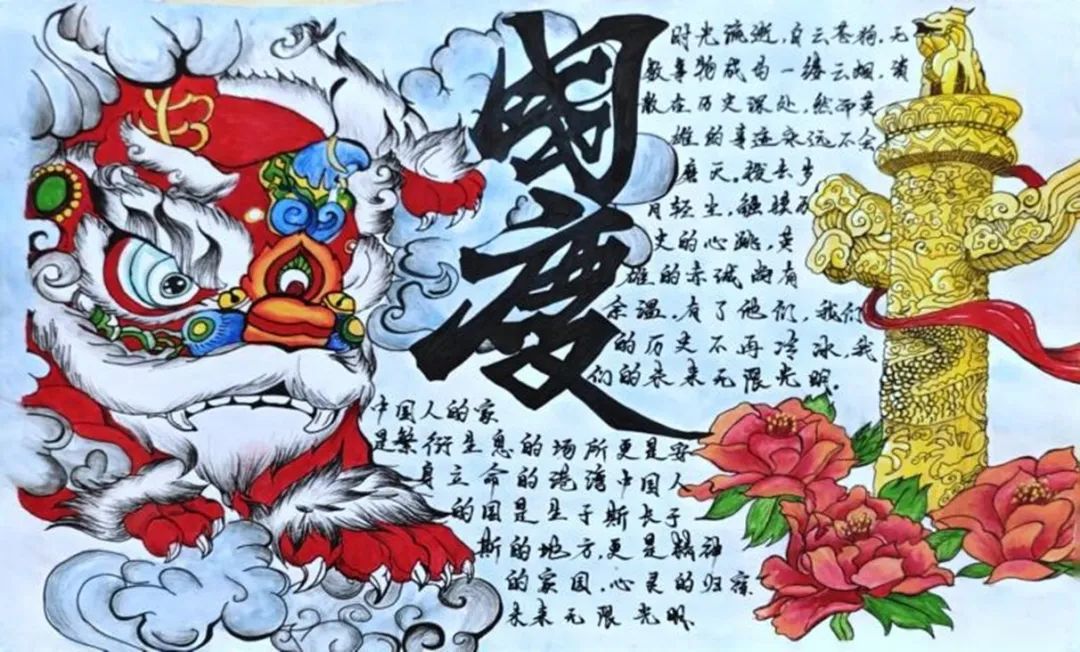 國慶
时光流逝,白云苍狗,无
数事物成为一缕云烟,消
散在历史深处,然而英
雄的事迹永远不会
磨灭。拨去岁
月轻尘,触摸历
史的心跳,英
雄的赤诚尚有
余温,有了他们,我们
的历史不再冷冰,我
们的未来无限光明。
中国人的家
是繁衍生息的场所更是安
身立命的港湾中国人
的国是生于斯长于
斯的地方,更是精神
的家园,心灵的归宿
未来无限光明.